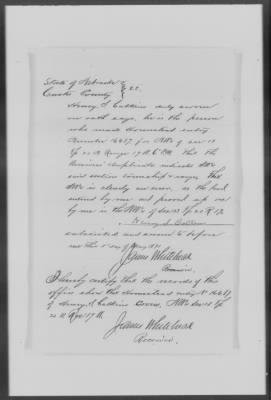 State of Nebraska
Custer County } S.S.
Henry S. Calkins duly sworn
on oath says, he is the person
who made homestead entry
Number 16687 for NW¼ of sec 13
Tp 20 N Range 17 W. 6 P.M. that the
Receiver's duplicate indicate
said section township & range. That
is clearly an error, as the land
entered by me and proved up on
by me is the NW¼ of Sec 13 Tp 20 R 17.
Henry S. Calkins
subscribed and sworn to before
me this day of May 1891
James Whitehead
Receiver.
I hereby certify that the records of this
office show that Homestead entry No 16687
of Henry S. Calkins Covers, NW¼ Sec 13 Tp
20 N Rge 17 W.
James Whitehead
Receiver.